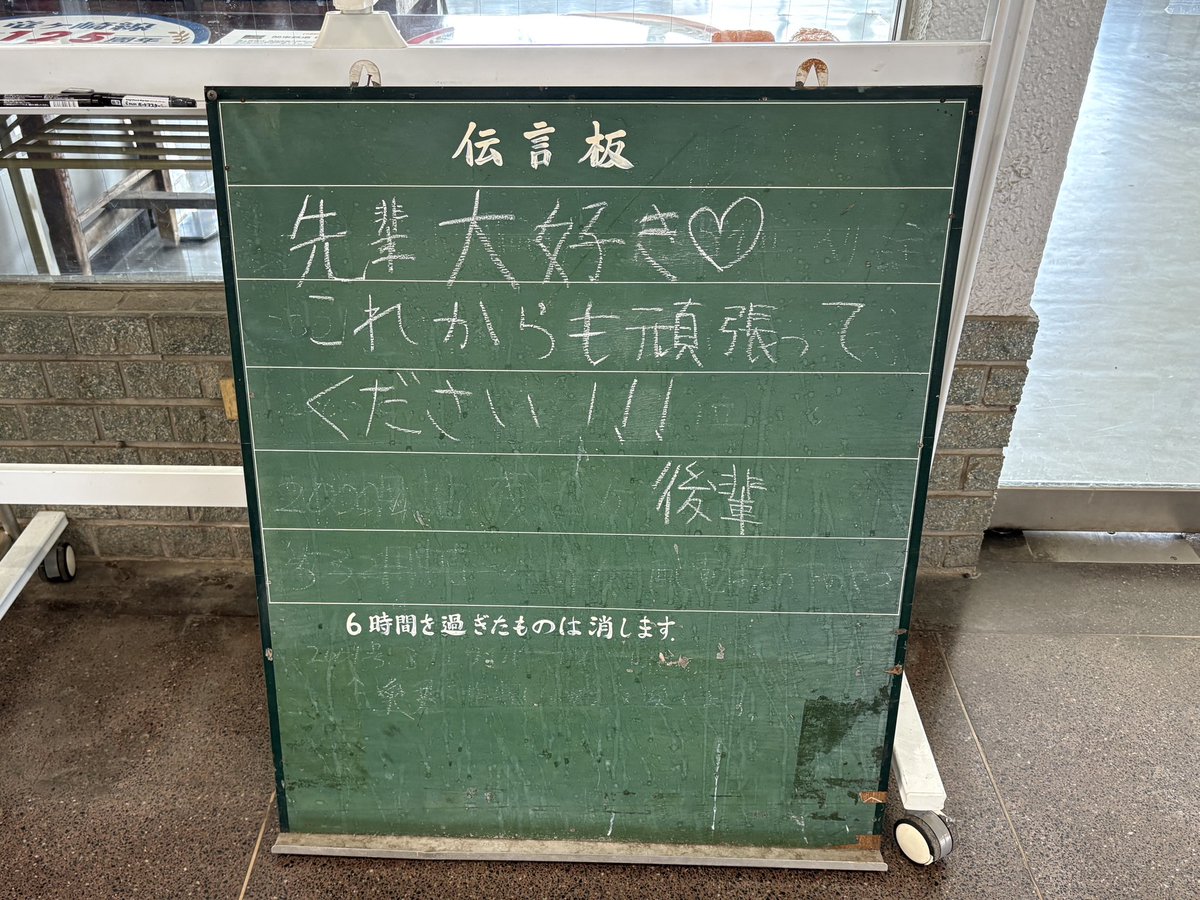 125周年
伝言板
先輩大好き♡
これからも頑張って
ください!!!
後輩
6時間を過ぎたものは消します.